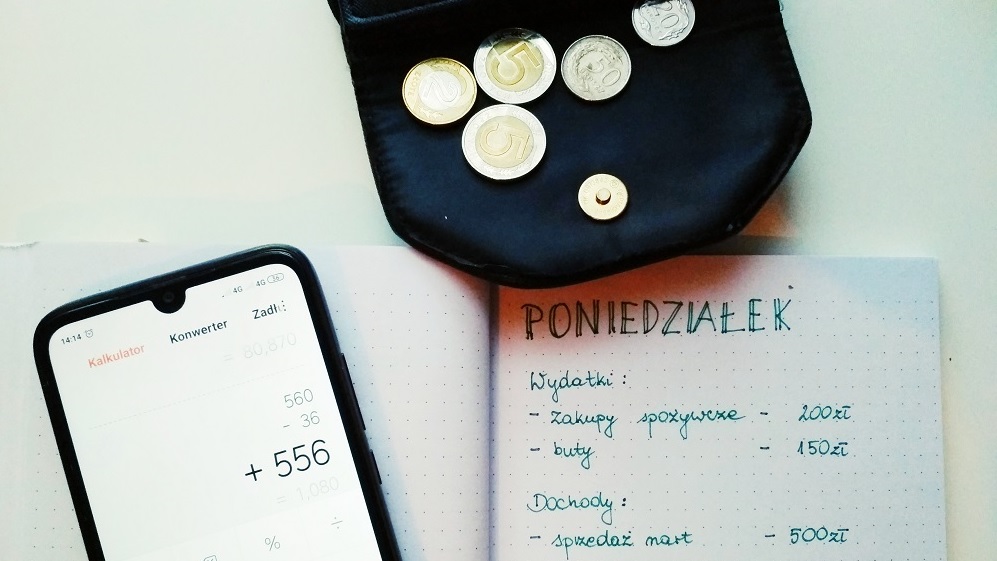 5
2
20
20
5
14:14
4G 4G 36
Kalkulator Konwerter Zadł
= 80,870
560
- 36
+ 556
= 1,080
÷
%
PONIEDZIAŁEK
Wydatki:
- zakupy spożywcze - 200zł
- buty - 150zł
Dochody:
- sprzedaż nart - 500zł